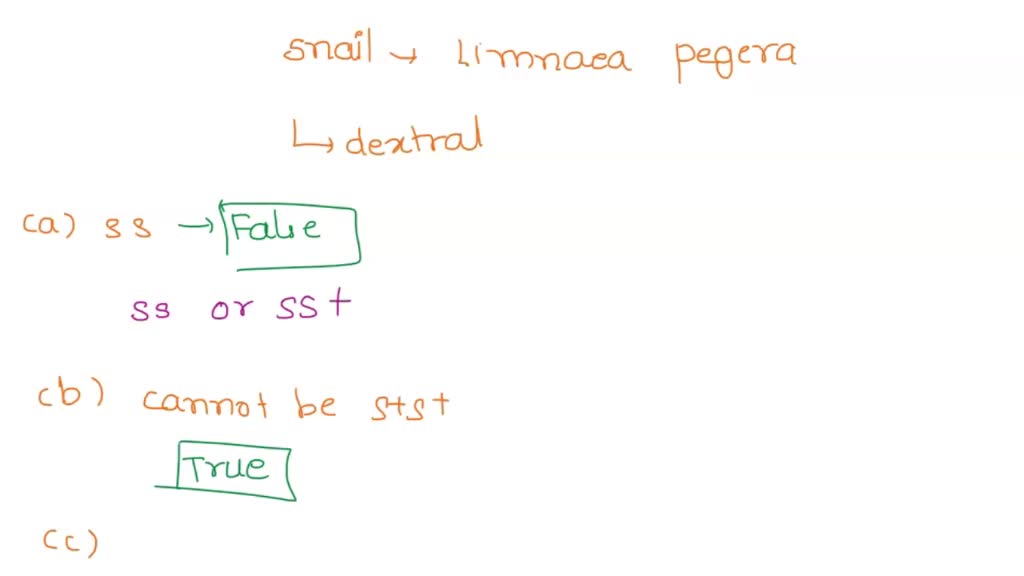 snail → Limnaea pegera
↳ dextral
(a) ss → False
ss or ss+
(b) cannot be s+s+
True
(c)